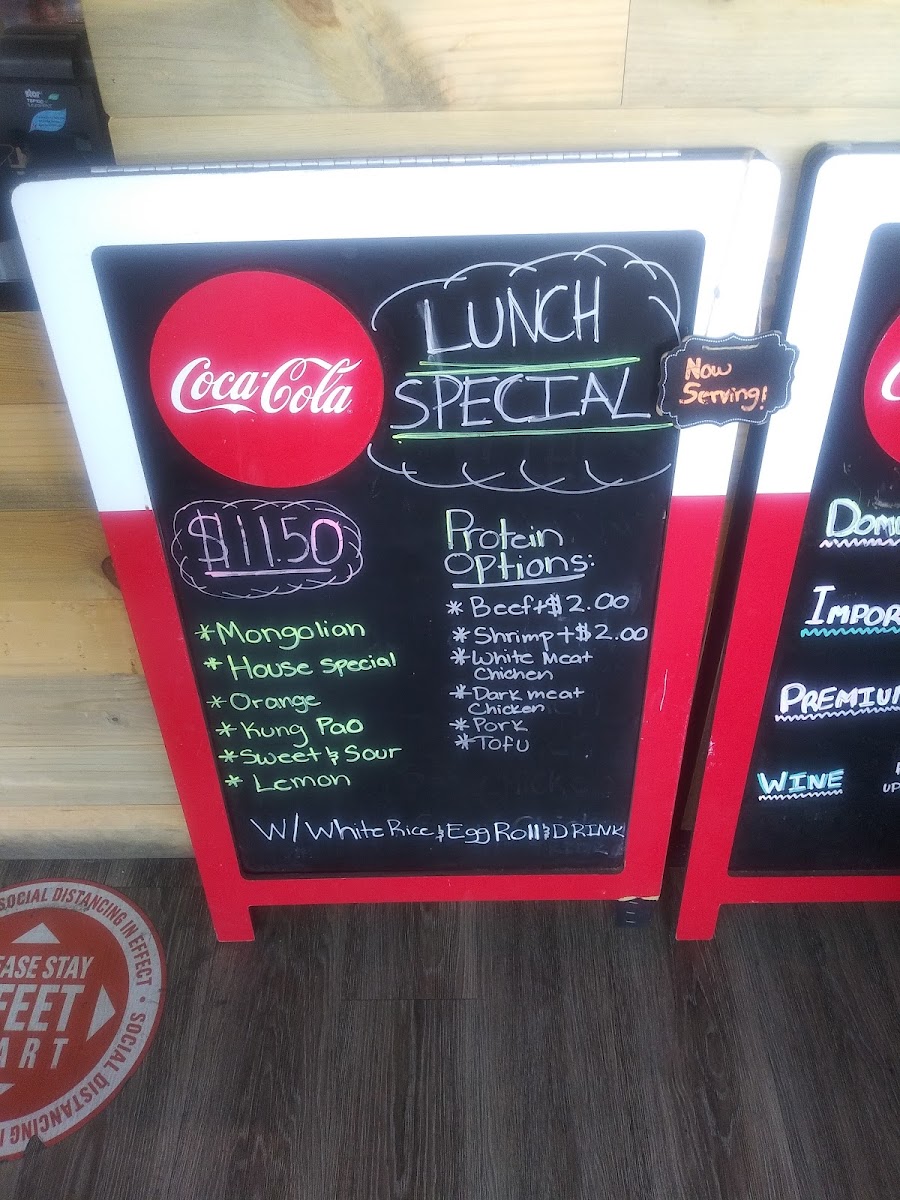 star
Coca-Cola
LUNCH
SPECIAL
Now
Serving!
$11.50
* Mongolian
* House special
* Orange
* Kung Pao
* Sweet & Sour
* Lemon
Protein
Options:
* Beef+$2.00
* Shrimp+$2.00
* White Meat
Chichen
* Dark meat
Chicken
* Pork
* Tofu
W/ White Rice & Egg Roll & DRINK
WINE
UP
SOCIAL DISTANCING IN EFFECT • SOCIAL DISTANCING
STAY
FEET